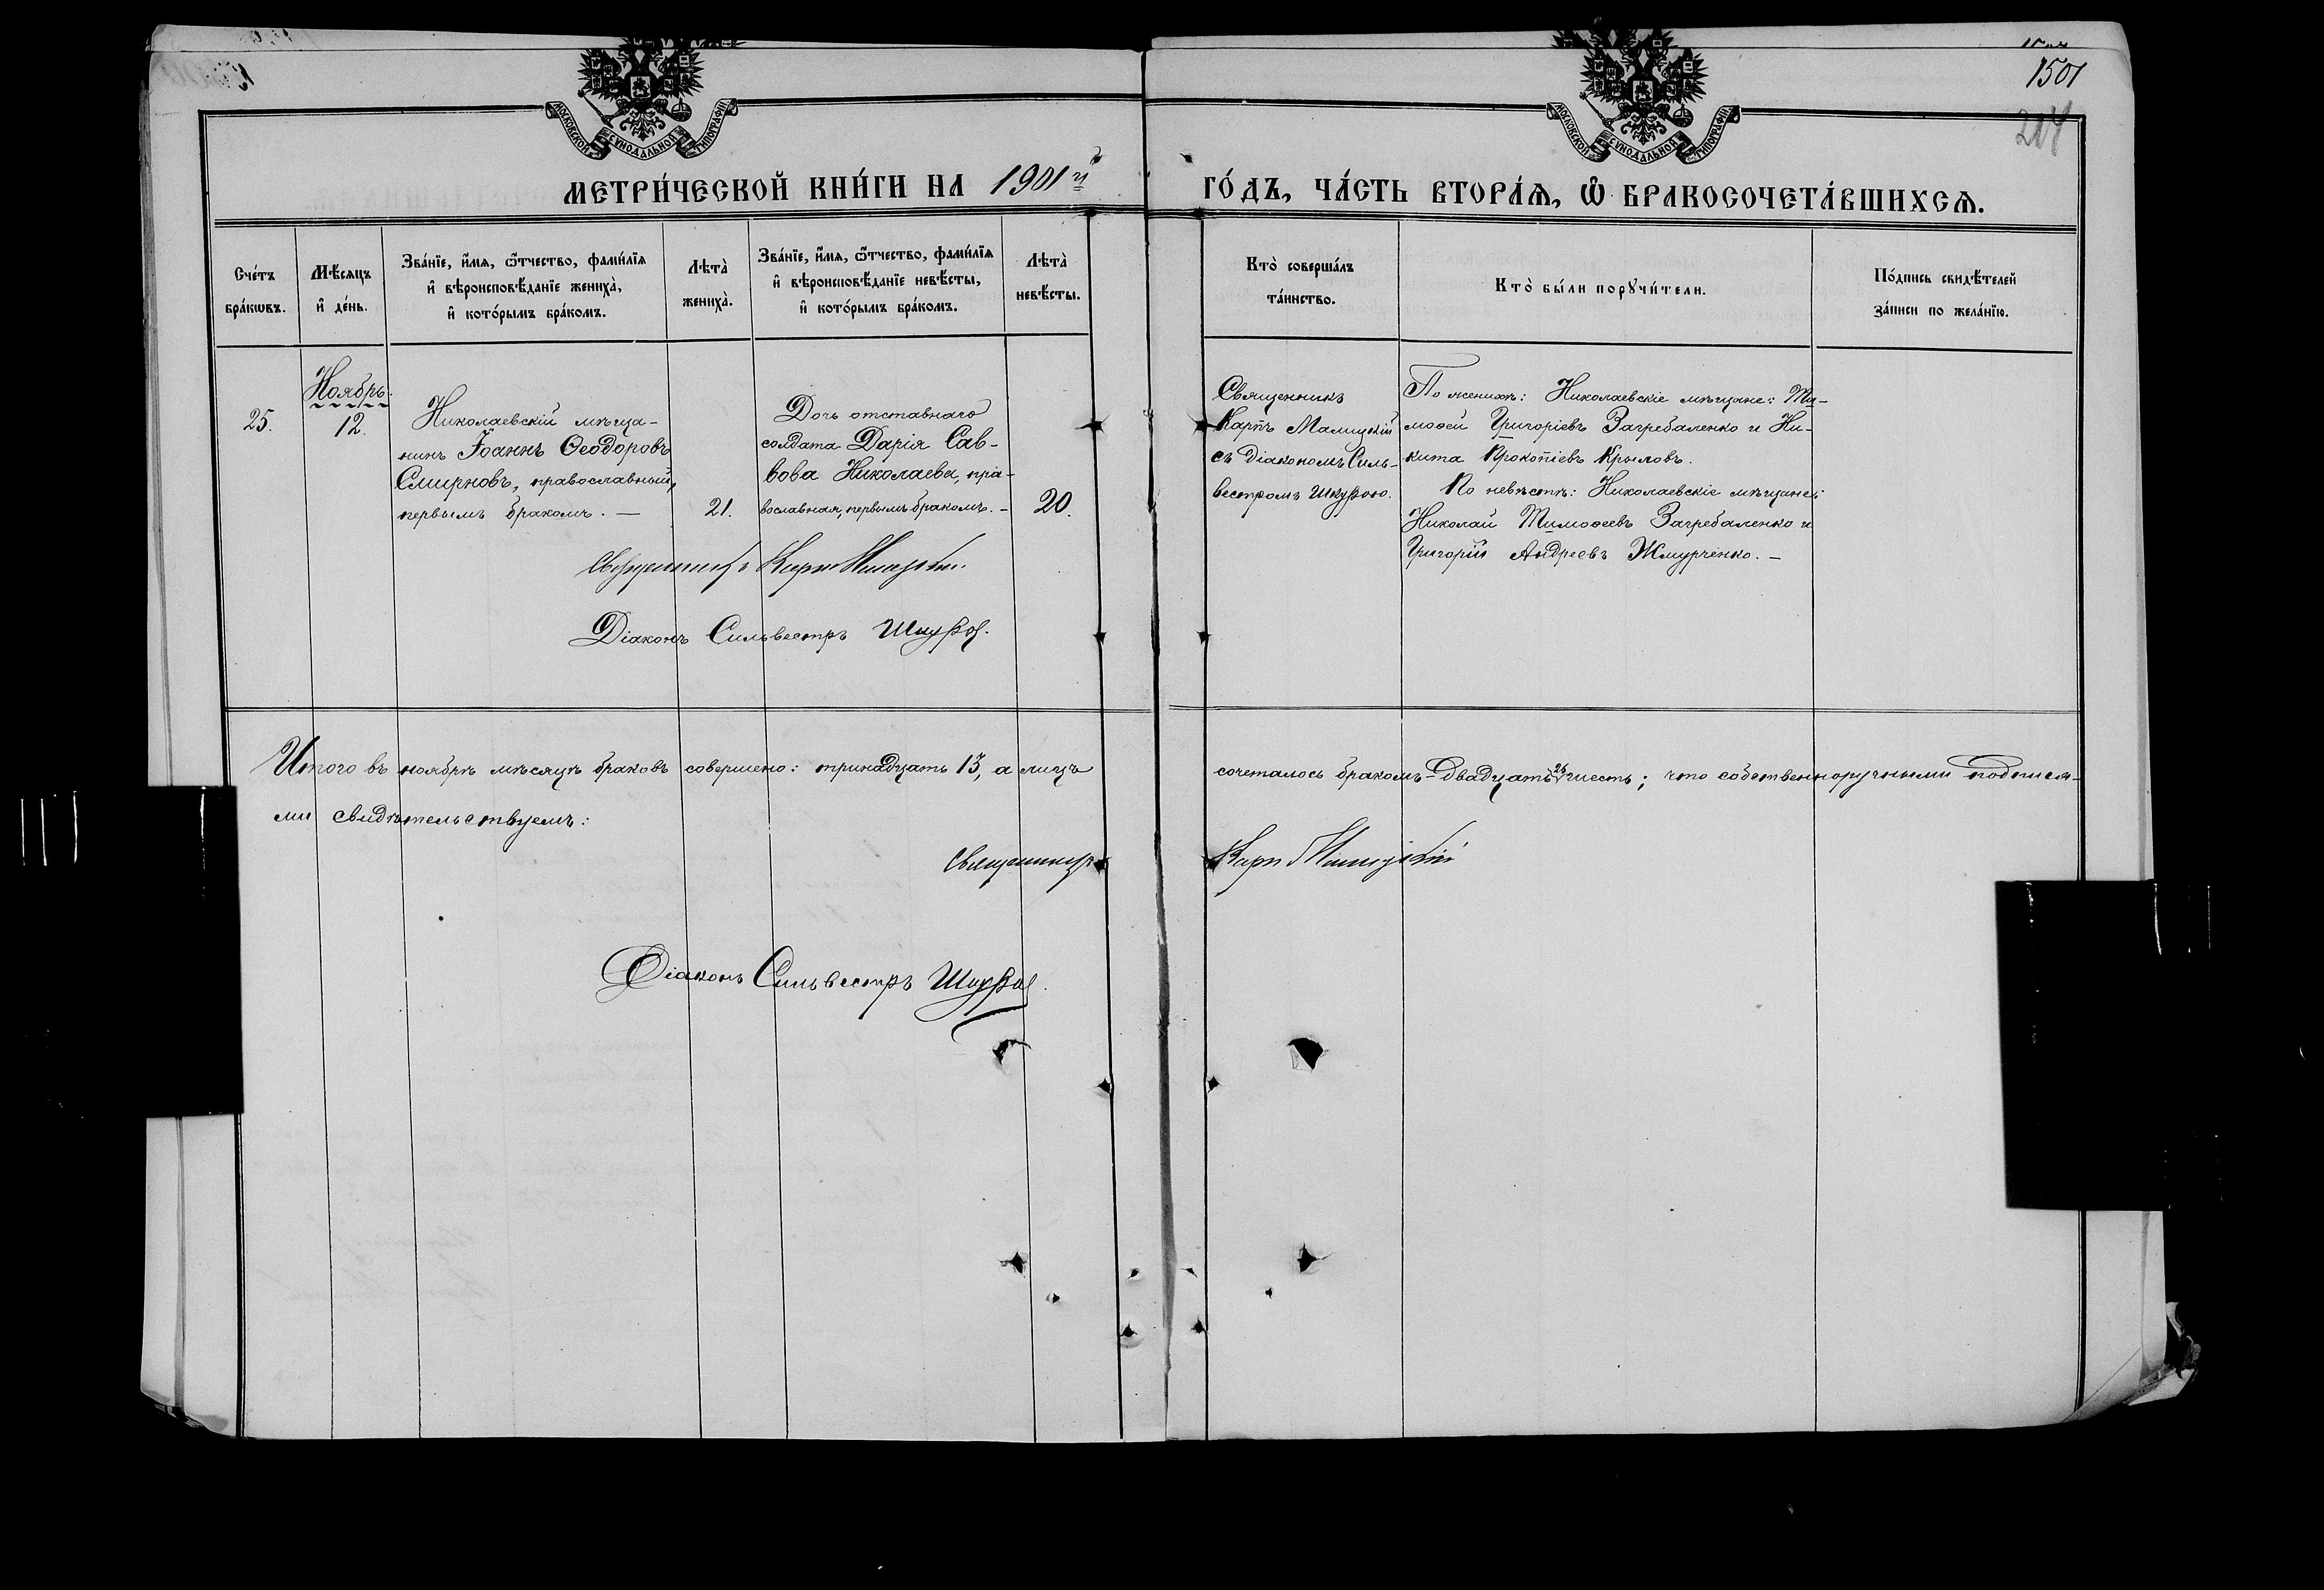 1501
214
МОСКОВСКОЙ СѴНОДАЛЬНОЙ ТИПОГРАФІИ
МОСКОВСКОЙ СѴНОДАЛЬНОЙ ТИПОГРАФІИ
МЕТРИ́ЧЕСКОЙ КНИ́ГИ НА 1901й ГО́ДЪ, ЧА́СТЬ ВТОРА́Ѧ, Ѽ БРАКОСОЧЕТА́ВШИХСѦ.
Сче́тъ
бра́кѡвъ.
Мѣ́сѧцъ
и҆ де́нь.
Зва́нїе, и҆́мѧ, ѻ҆́тчество, фами́лїѧ
и҆ вѣроисповѣ́данїе жениха̀,
и҆ кото́рымъ бра́комъ.
Лѣта̀
жениха̀.
Зва́нїе, и҆́мѧ, ѻ҆́тчество, фами́лїѧ
и҆ вѣроисповѣ́данїе невѣ́сты,
и҆ кото́рымъ бра́комъ.
Лѣта̀
невѣ́сты.
Кто̀ соверша́лъ
та́инство.
Кто̀ бы́ли порꙋчи́тели.
По́дпись свидѣ́телей
за́писи по жела́нїю.
25.
Ноябрь.
12.
Николаевскій мѣща-
нинъ Іоаннъ Ѳеодоровъ
Смирновъ, православный,
первымъ бракомъ. —
21.
Дочь отставнаго
солдата Дарія Сав-
вова Николаева, пра-
вославная, первымъ бракомъ. –
20.
Священникъ
Карпъ Малицкій
съ діакономъ Силь-
вестромъ Шкурою.
По женихѣ: Николаевскіе мѣщане: Ти-
моѳей Григоріевъ Загребаленко и Ни-
кита Прокопіевъ Крыловъ.
По невѣстѣ: Николаевскіе мѣщане:
Николай Тимоѳеевъ Загребаленко и
Григорій Андреевъ Жмурченко. –
Священникъ Карпъ Малицкій.
Діаконъ Сильвестръ Шкура.
Итого въ ноябрѣ мѣсяцѣ браковъ совершено: тринадцать 13, а лицъ сочеталось бракомъ – двадцать 26 шесть; что собственноручными подпися-
ми свидѣтельствуемъ:
Священникъ Карпъ Малицкій
Діаконъ Сильвестръ Шкура.